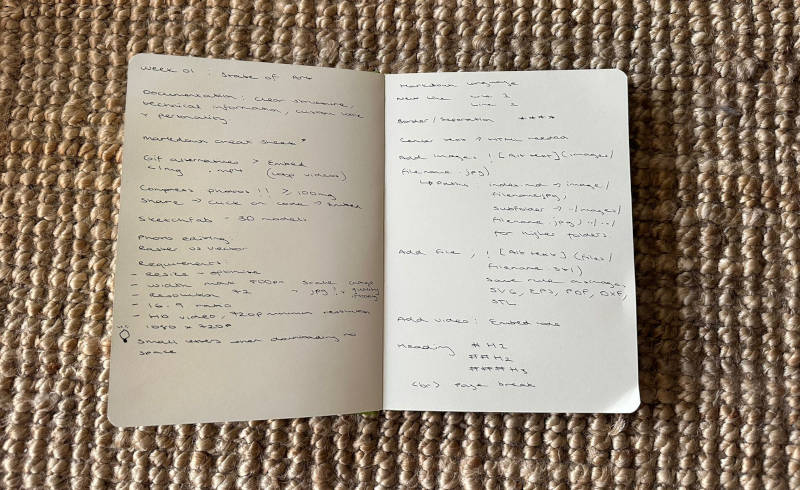 Week 01 : State of Art
Documentation : clear structure,
technical information, custom code
+ personality
Markdown cheat sheet *
Gif alternatives > Embed
<1mg .mp4 (loop videos)
Compress photos !!
Share → click on code → Embed
Sketchfab - 3D models
Photo editing
Raster vs vector
Requirements
- Resize - optimise
- width max 800px
- Resolution 72 → jpg quality
16:9 ratio
- HD video, 720p minimum resolution
1080 x 720p
Small
space
Markdown language
New line Line 1
Line 2
Border / Separation ****
Center text → HTML needed
Add image, ! [Alt text] (images/
filename.jpg)
↳ Paths : index.md → image/
filename.jpg,
subfolder → ../images/
filename.jpg, ../../
for higher folders
Add file, ! [Alt text] (files/
filename.stl)
same rule as images,
SVG, EPS, PDF, DXF,
STL
Add video : Embed code
Heading # H1
## H2
### H3
<br> Page break